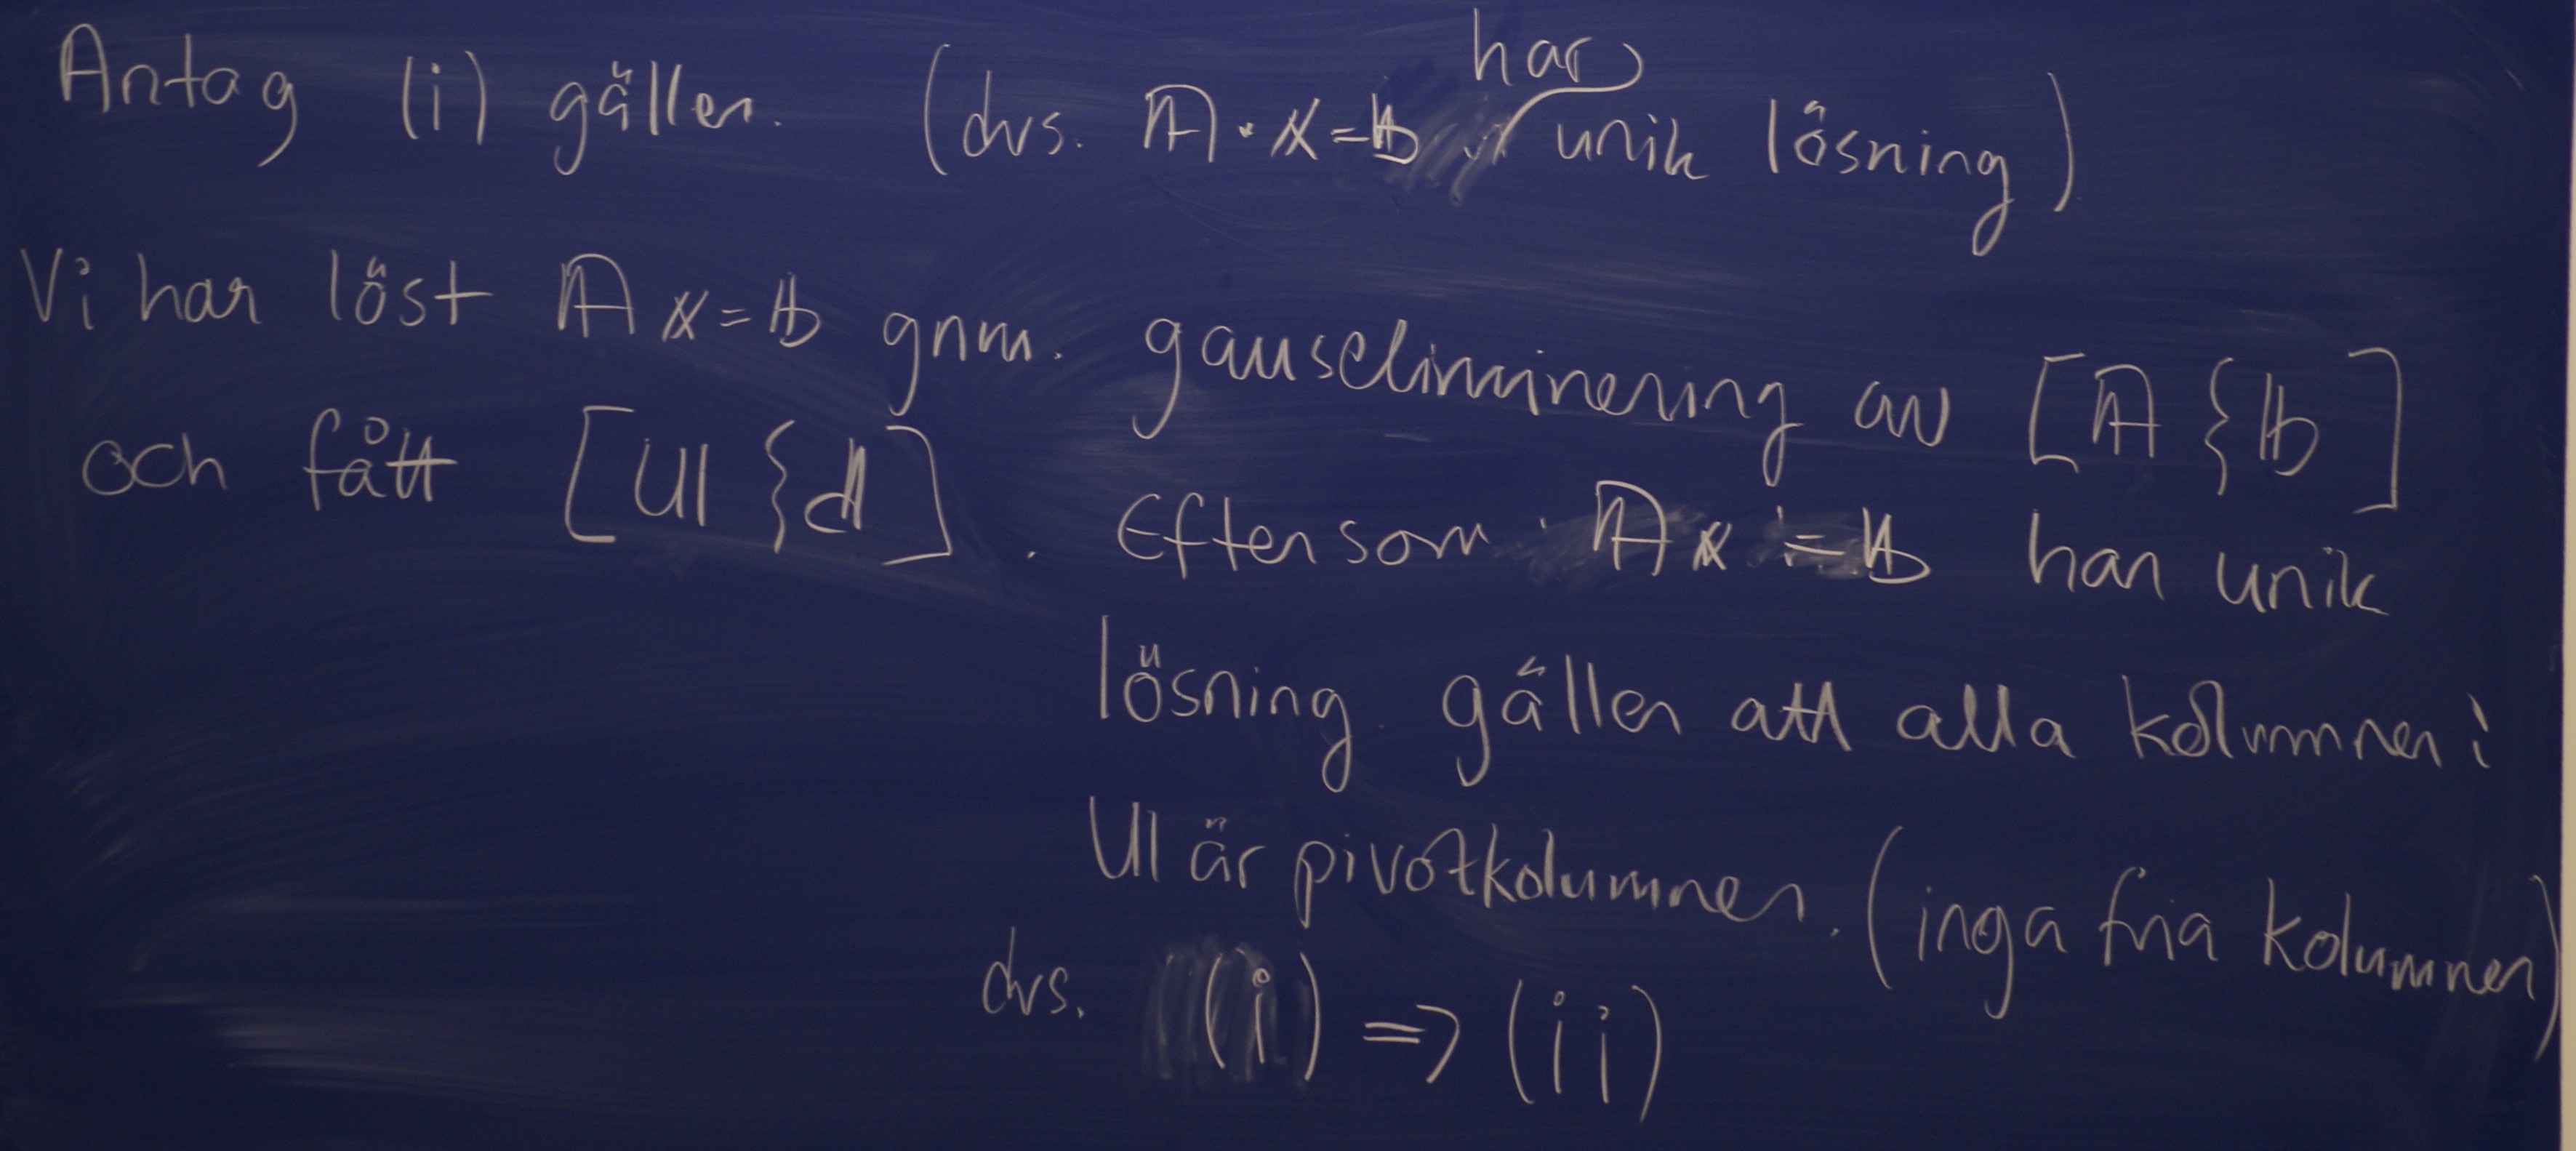 Antag (i) gäller. (dvs. A·x=b har unik lösning)
Vi har löst Ax=b gnm. gauseliminering av [A { b]
och fått [U { d]. Eftersom Ax=b har unik
lösning gäller att alla kolumner i
U är pivotkolumner. (inga fria kolumner)
dvs. (i) => (ii)